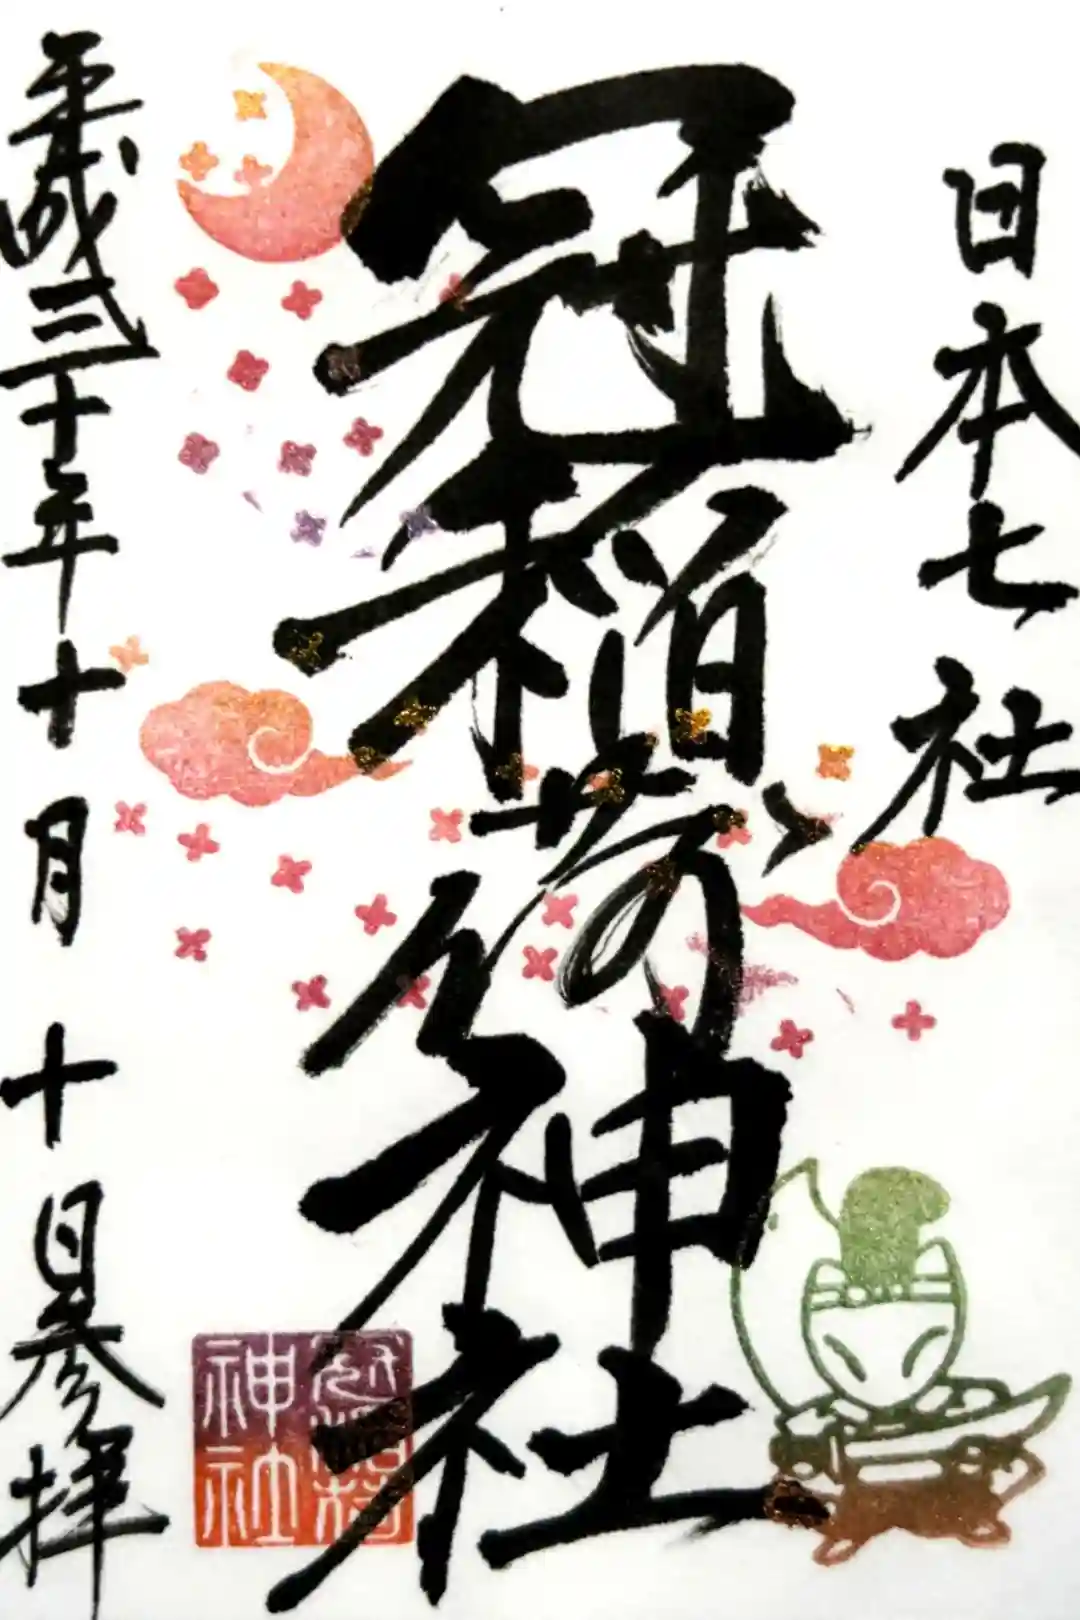 日本七社
冠稲荷神社
平成三十年十月十日参拝
冠稲荷
神社